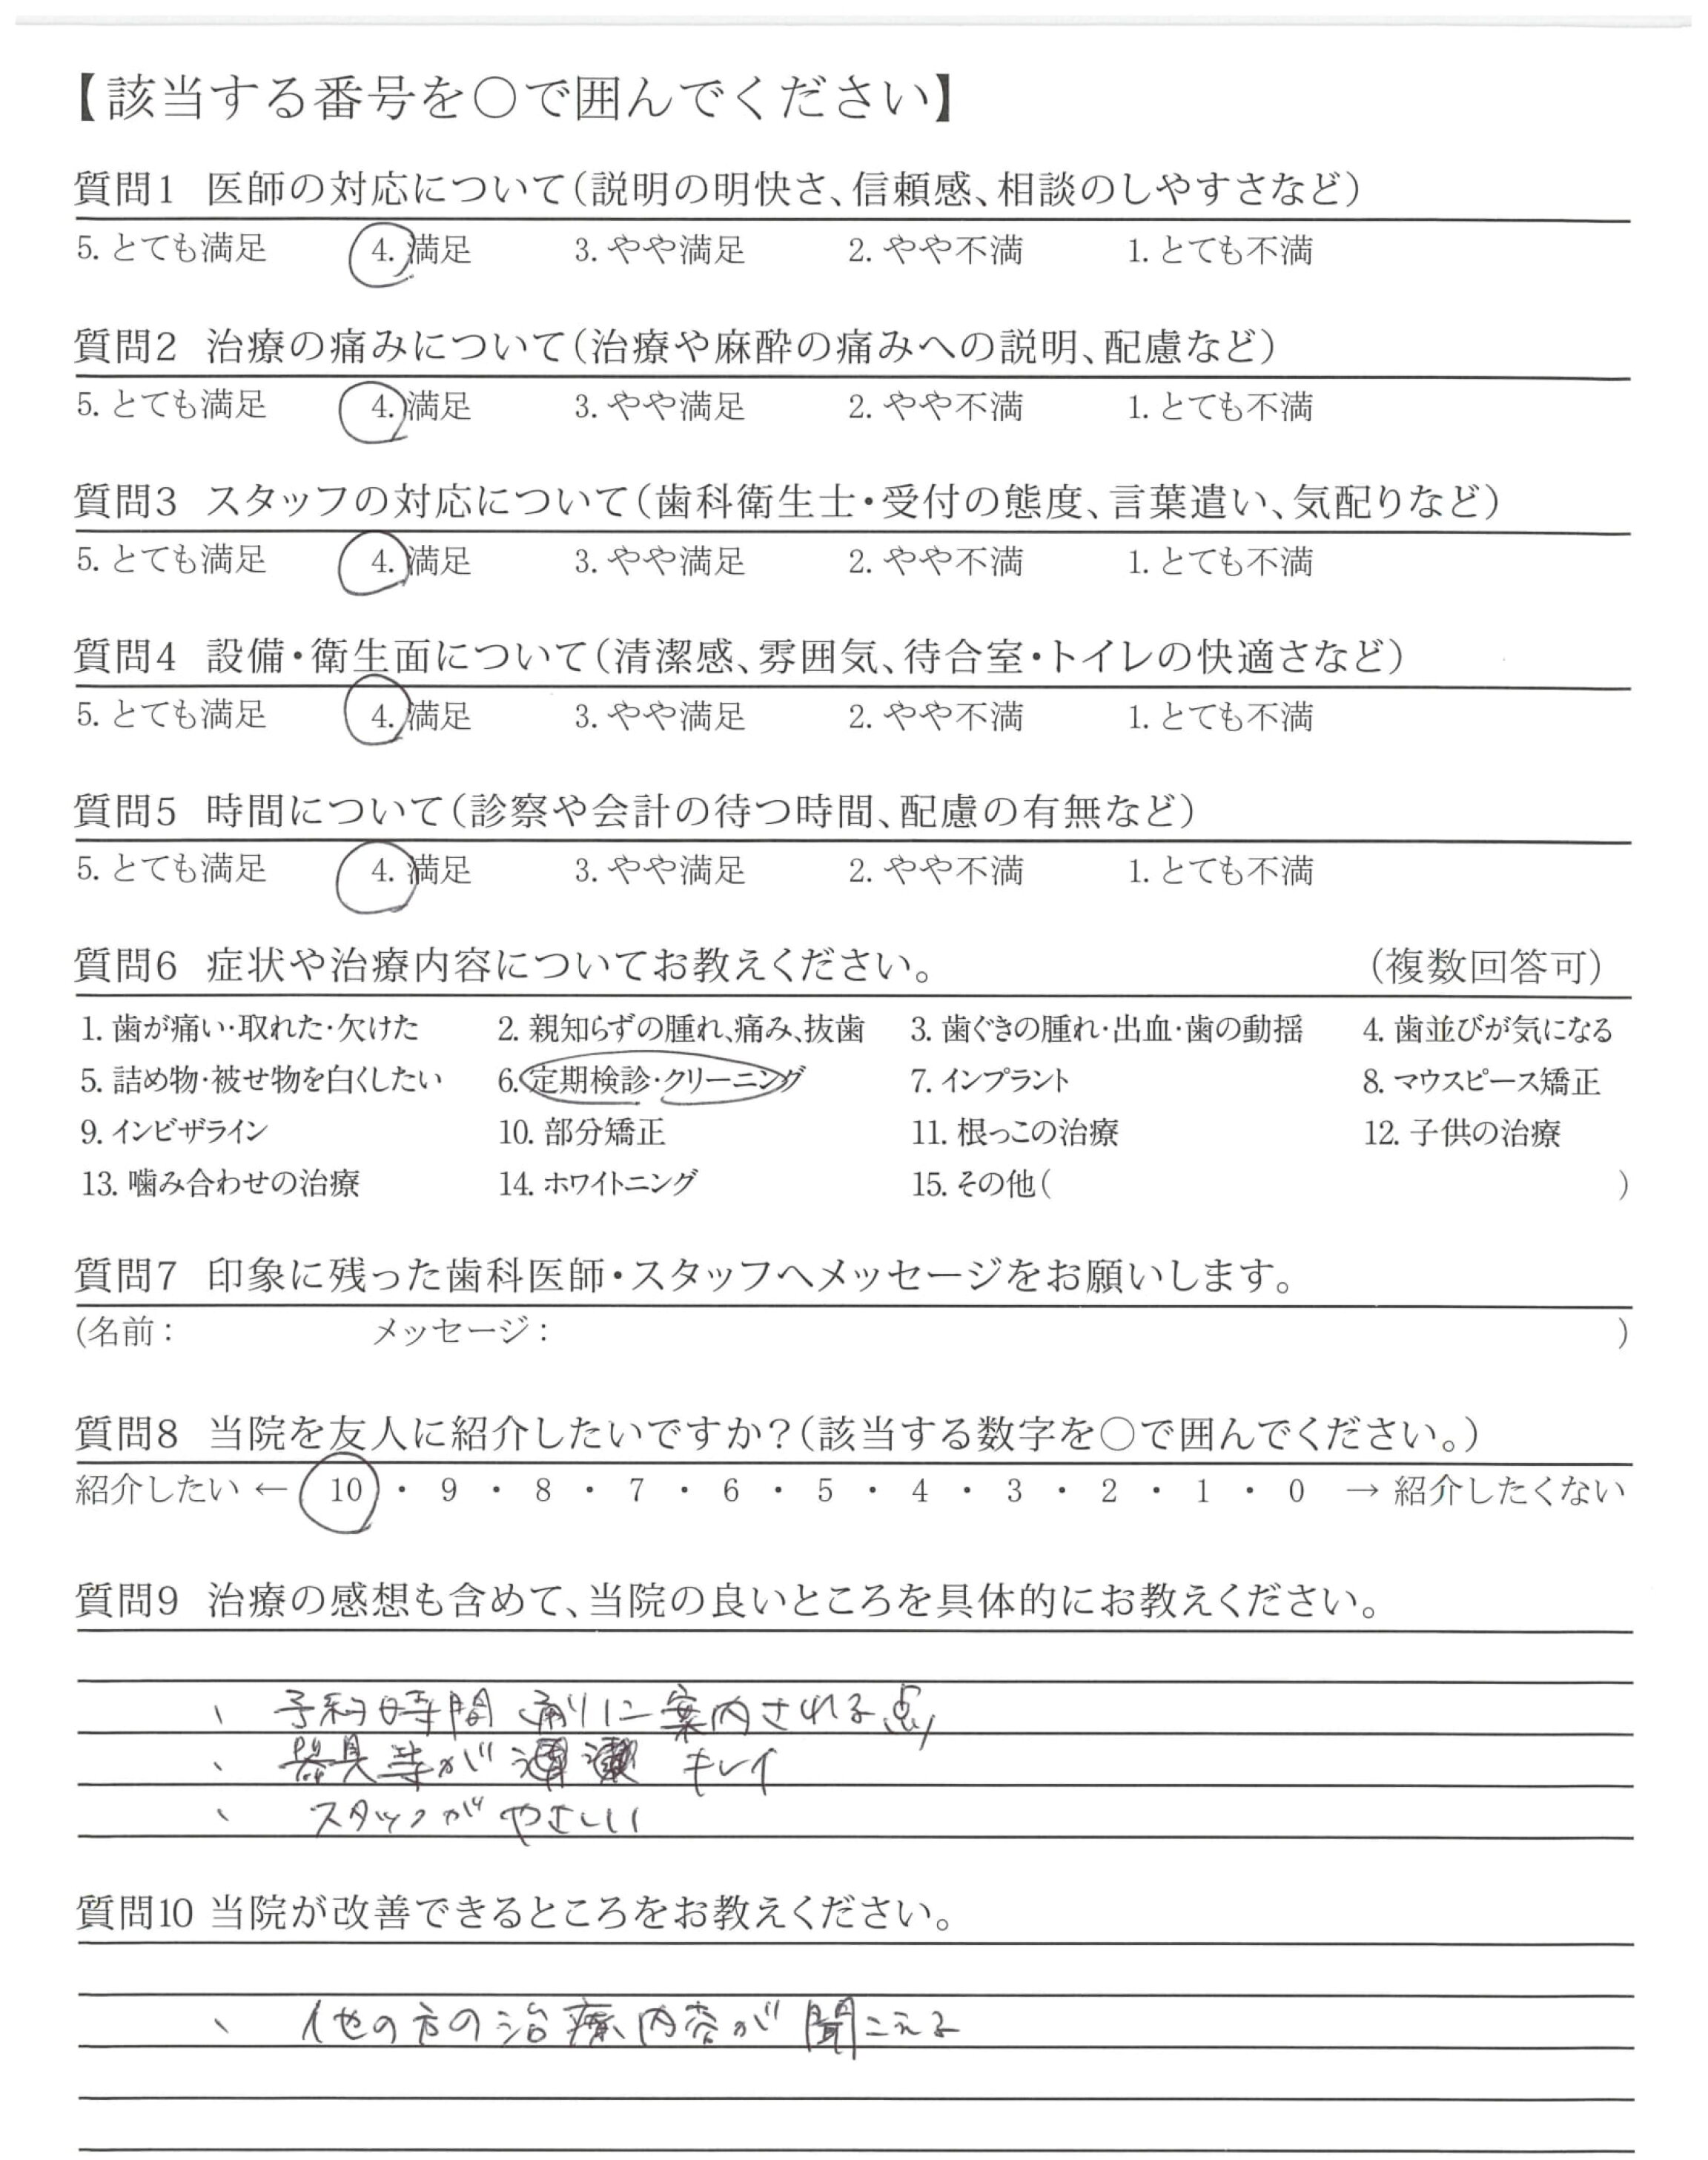 【該当する番号を○で囲んでください】
質問1 医師の対応について(説明の明快さ、信頼感、相談のしやすさなど)
5. とても満足 4. 満足 3. やや満足 2. やや不満 1. とても不満
質問2 治療の痛みについて(治療や麻酔の痛みへの説明、配慮など)
5. とても満足 4. 満足 3. やや満足 2. やや不満 1. とても不満
質問3 スタッフの対応について(歯科衛生士・受付の態度、言葉遣い、気配りなど)
5. とても満足 4. 満足 3. やや満足 2. やや不満 1. とても不満
質問4 設備・衛生面について(清潔感、雰囲気、待合室・トイレの快適さなど)
5. とても満足 4. 満足 3. やや満足 2. やや不満 1. とても不満
質問5 時間について(診察や会計の待つ時間、配慮の有無など)
5. とても満足 4. 満足 3. やや満足 2. やや不満 1. とても不満
質問6 症状や治療内容についてお教えください。 (複数回答可)
1. 歯が痛い・取れた・欠けた 2. 親知らずの腫れ、痛み、抜歯 3. 歯ぐきの腫れ・出血・歯の動揺 4. 歯並びが気になる
5. 詰め物・被せ物を白くしたい 6. 定期検診・クリーニング 7. インプラント 8. マウスピース矯正
9. インビザライン 10. 部分矯正 11. 根っこの治療 12. 子供の治療
13. 噛み合わせの治療 14. ホワイトニング 15. その他( )
質問7 印象に残った歯科医師・スタッフへメッセージをお願いします。
(名前: メッセージ: )
質問8 当院を友人に紹介したいですか?(該当する数字を○で囲んでください。)
紹介したい ← 10 ・ 9 ・ 8 ・ 7 ・ 6 ・ 5 ・ 4 ・ 3 ・ 2 ・ 1 ・ 0 → 紹介したくない
質問9 治療の感想も含めて、当院の良いところを具体的にお教えください。
、 予約時間通りに案内される点
、 器具等が キレイ
、 スタッフがやさしい
質問10 当院が改善できるところをお教えください。
、 他の方の治療内容が聞こえる